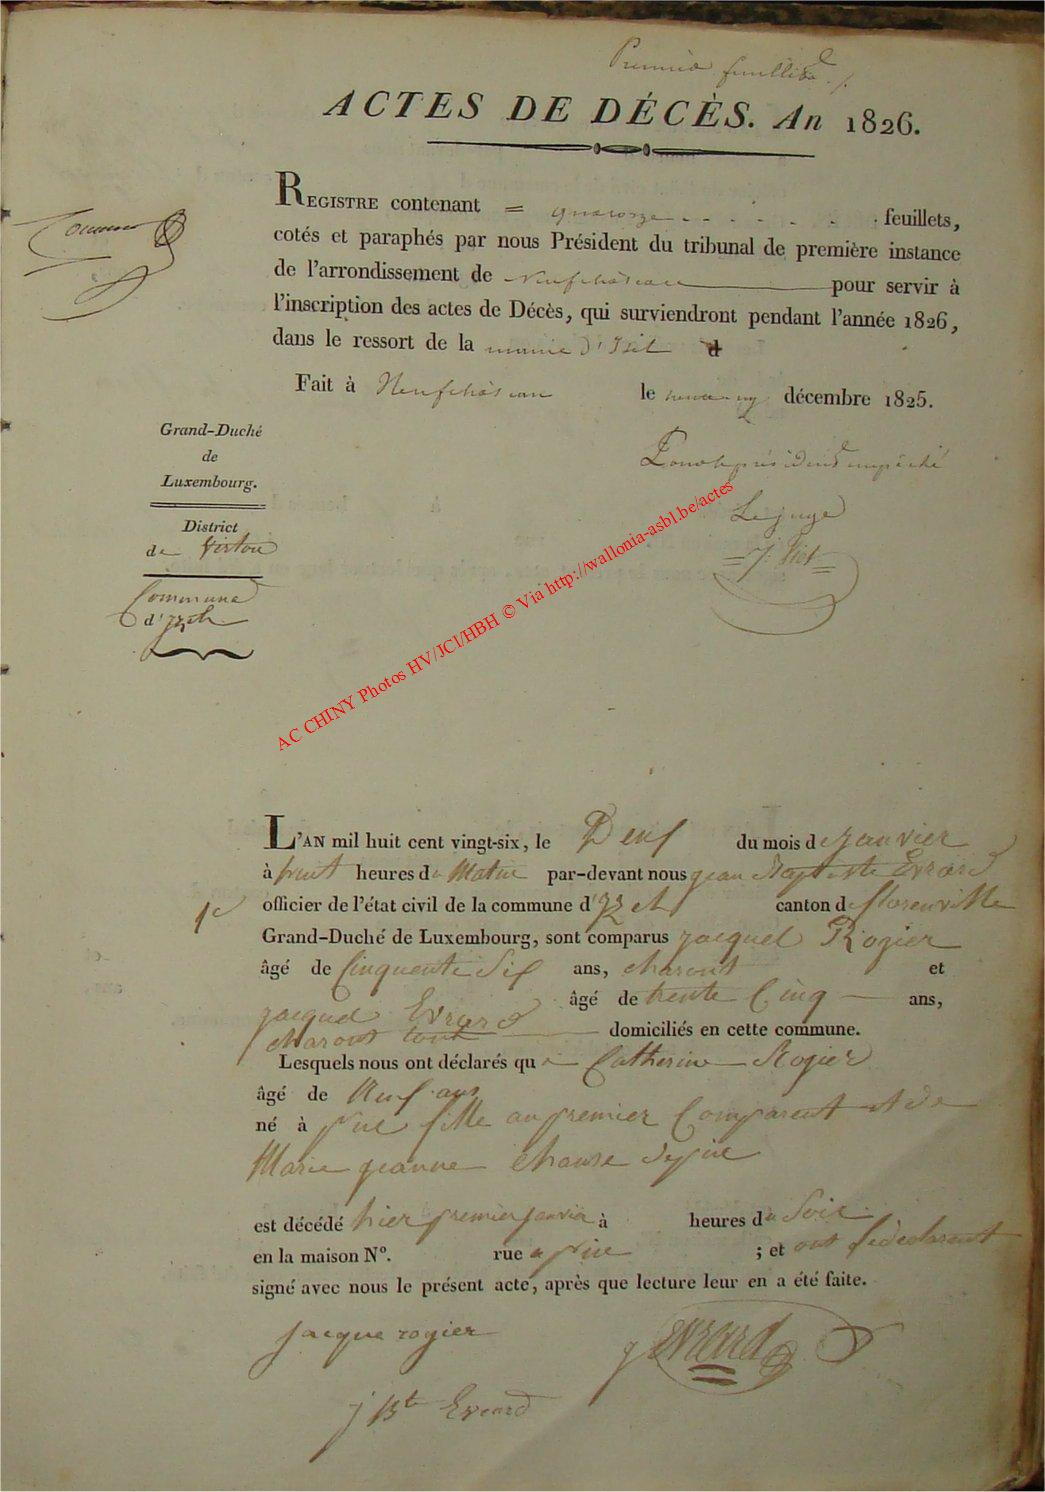 Premier feuillet
ACTES DE DÉCÈS. An 1826.
REGISTRE contenant = quatorze feuillets,
cotés et paraphés par nous Président du tribunal de première instance
de l'arrondissement de Neufchâteau pour servir à
l'inscription des actes de Décès, qui surviendront pendant l'année 1826,
dans le ressort de la mairie d'Isel
Fait à Neufchâteau le décembre 1825.
Pour le président empêché
Le juge
Grand-Duché
de
Luxembourg.
District
de Virton
Commune
d'Izel
AC CHINY Photos HV/JCl/HBH © Via http://wallonia-asbl.be/actes
L'AN mil huit cent vingt-six, le Deux du mois de janvier
à huit heures du Matin par-devant nous jean Baptiste Evrard
1e
officier de l'état civil de la commune d'Izel canton de florenville
Grand-Duché de Luxembourg, sont comparus jacques Rogier
âgé de Cinquente Six ans, charont et
jacques Evrard âgé de trente Cinq ans,
charont tout domiciliés en cette commune.
Lesquels nous ont déclarés que Catherine Rogier
âgé de Neuf ans
né à pin fille au premier Comparent et de
Marie jeanne chause de pin
est décédé hier premier janvier à heures du Soir
en la maison N°. rue a pin ; et ont le declarant
signé avec nous le présent acte, après que lecture leur en a été faite.
jacque rogier
J Evrard
j Bte Evrard